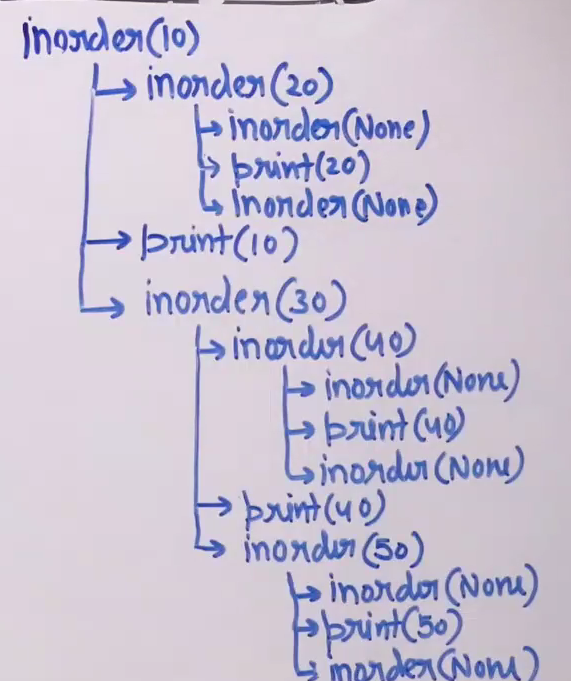 inorder(10)
inorder(20)
inorder(None)
print(20)
inorder(None)
print(10)
inorder(30)
inorder(40)
inorder(None)
print(40)
inorder(None)
print(40)
inorder(50)
inorder(None)
print(50)
inorder(None)